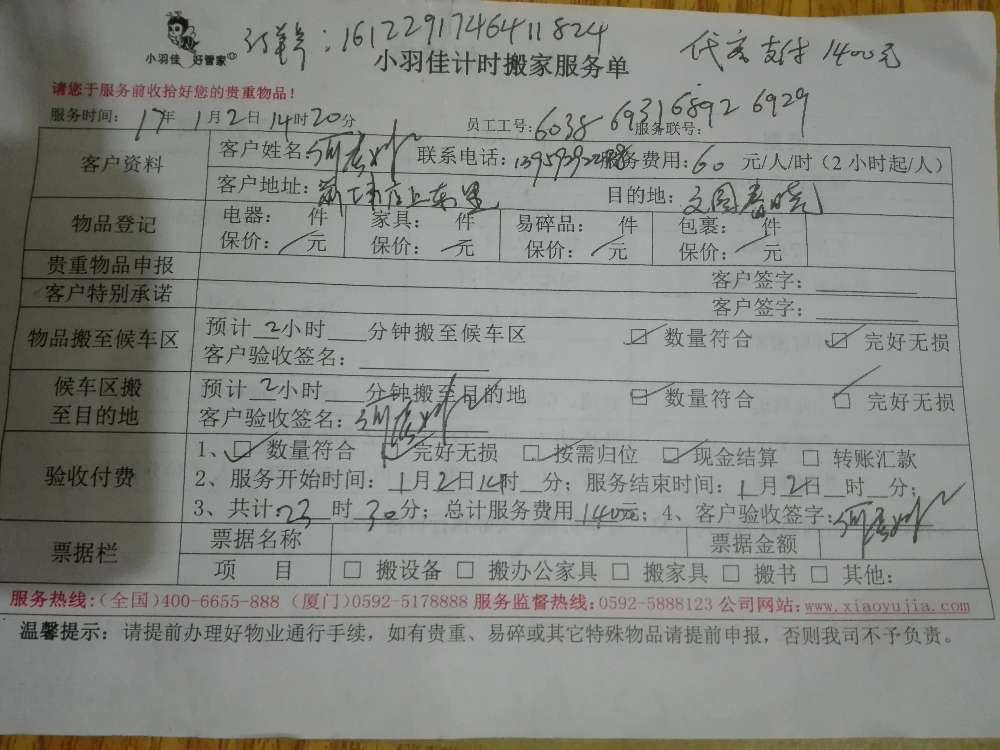 订单号：161229174641​1824
代客支付1400元
小羽佳 好管家
小羽佳计时搬家服务单
请您于服务前收拾好您的贵重物品！
服务时间：17年1月2日14时20分 员工工号：6038 6931 6892 6929 服务联号：
客户资料 客户姓名： 联系电话： 服务费用：60元/人/时（2小时起/人）
客户地址： 目的地：文园春晓
物品登记 电器： 件 家具： 件 易碎品： 件 包裹： 件
保价： 元 保价： 元 保价： 元 保价： 元
贵重物品申报 客户签字：
客户特别承诺 客户签字：
物品搬至候车区 预计2小时 分钟搬至候车区 数量符合 完好无损
客户验收签名：
候车区搬至目的地 预计2小时 分钟搬至目的地 数量符合 完好无损
客户验收签名：
验收付费 1、数量符合 完好无损 按需归位 现金结算 转账汇款
2、服务开始时间：1月2日14时 分；服务结束时间：1月2日 时 分；
3、共计23时30分；总计服务费用1400元；4、客户验收签字：
票据栏 票据名称 票据金额
项 目 搬设备 搬办公家具 搬家具 搬书 其他：
服务热线:（全国）400-6655-888（厦门）0592-5178888 服务监督热线:0592-5888123 公司网站:www.xiaoyujia.com
温馨提示：请提前办理好物业通行手续，如有贵重、易碎或其它特殊物品请提前申报，否则我司不予负责。